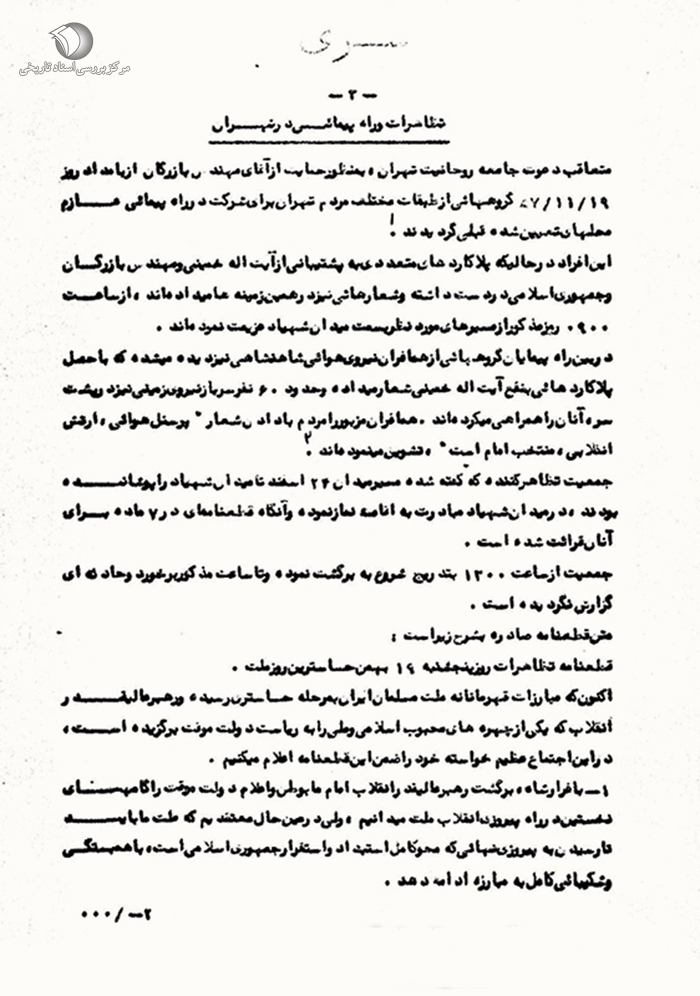 سری
مرکز بررسی اسناد تاریخی
- ۳ -
تظاهرات و راه پیمائی در تهران
متعاقب دعوت جامعه روحانیت تهران ، بمنظور حمایت از آقای مهندس بازرگان از بامداد روز
۵۷/۱۱/۱۹ گروههائی از طبقات مختلف مردم تهران برای شرکت در راه پیمائی عازم
محلهای تعیین شده قبلی گردیدند ۱.
این افراد در حالیکه پلاکاردهای متعددی به پشتیبانی از آیت اله خمینی و مهندس بازرگان
و جمهوری اسلامی در دست داشته و شعارهائی نیز در همین زمینه میداده‌اند ، از ساعت
۰۹۰۰ روز مذکور از مسیرهای مورد نظر بسمت میدان شهیاد عزیمت نموده‌اند .
در بین راه پیمایان گروههائی از همافران نیروی هوائی شاهنشاهی نیز دیده میشده که با حمل
پلاکاردهائی بنفع آیت اله خمینی شعار میداده و حدود ۶۰ نفر سرباز نیروی زمینی نیز در پشت
سر ، آنان را همراهی میکرده‌اند . همافران مزبور را مردم با دادن شعار " پرسنل هوائی ، ارتش
انقلابی ، منتخب امام است " ، تشویق مینموده‌اند ۲.
جمعیت تظاهر کننده که گفته شده مسیر میدان ۲۴ اسفند تا میدان شهیاد را پوشانده
بودند ، در میدان شهیاد مبادرت به اقامه نماز نموده و آنگاه قطعنامه‌ای در ۷ ماده برای
آنان قرائت شده است .
جمعیت از ساعت ۱۳۰۰ بتدریج شروع به برگشت نموده و تا ساعت مذکور برخورد و حادثه ای
گزارش نگردیده است .
متن قطعنامه صادره بشرح زیر است :
قطعنامه تظاهرات روز پنجشنبه ۱۹ بهمن حساسترین روز ملت .
اکنون که مبارزات قهرمانانه ملت مسلمان ایران به مرحله حساستری رسیده و رهبر عالیقدر
انقلاب که یکی از چهره های محبوب اسلامی و ملی را به ریاست دولت موقت برگزیده است ،
در این اجتماع عظیم خواسته خود را ضمن این قطعنامه اعلام میکنیم .
۱- با فرار شاه ، برگشت رهبر عالیقدر انقلاب امام ما بوطن و اعلام دولت موقت را گامهای
نخستین در راه پیروزی انقلاب ملت میدانیم ، ولی در عین حال معتقدیم که ملت ما باید
تا رسیدن به پیروزی نهائی که محو کامل استبداد و استقرار جمهوری اسلامی است ، با همبستگی
و شکیبائی کامل به مبارزه ادامه دهد .
۲-/۰۰۰